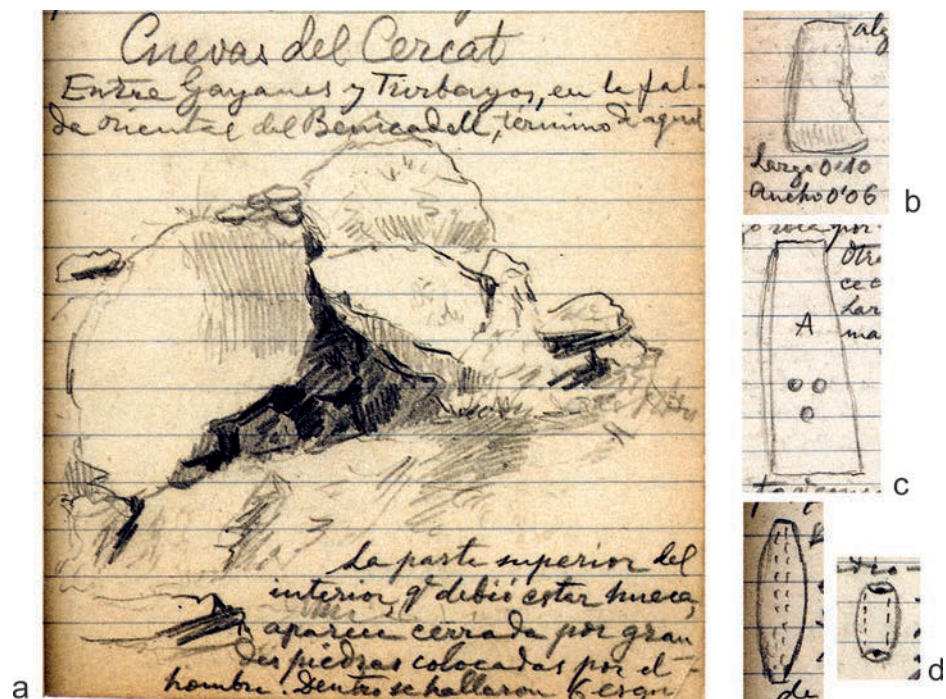 Cuevas del Cercat
Entre Gayanes y Turbayos, en la fal-
da oriental del Benicadell, término de
La parte superior del
interior, q' debió estar hueca,
aparece cerrada por gran
des piedras colocadas por el
hombre. Dentro se hallaron 6 esqu
a
alg
Largo 0'10
Ancho 0'06
b
por
Otr
ce
Lar
ma
A
c
de
d